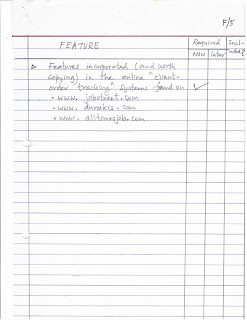 F/5
FEATURE
Required
Incl-
uded?
Now
Later
Features incorporated (and worth
copying) in the online "client-
order tracking" systems found on ✓
• www. jobstreet. com
• www. durakis. com
• www. alltimejob. com